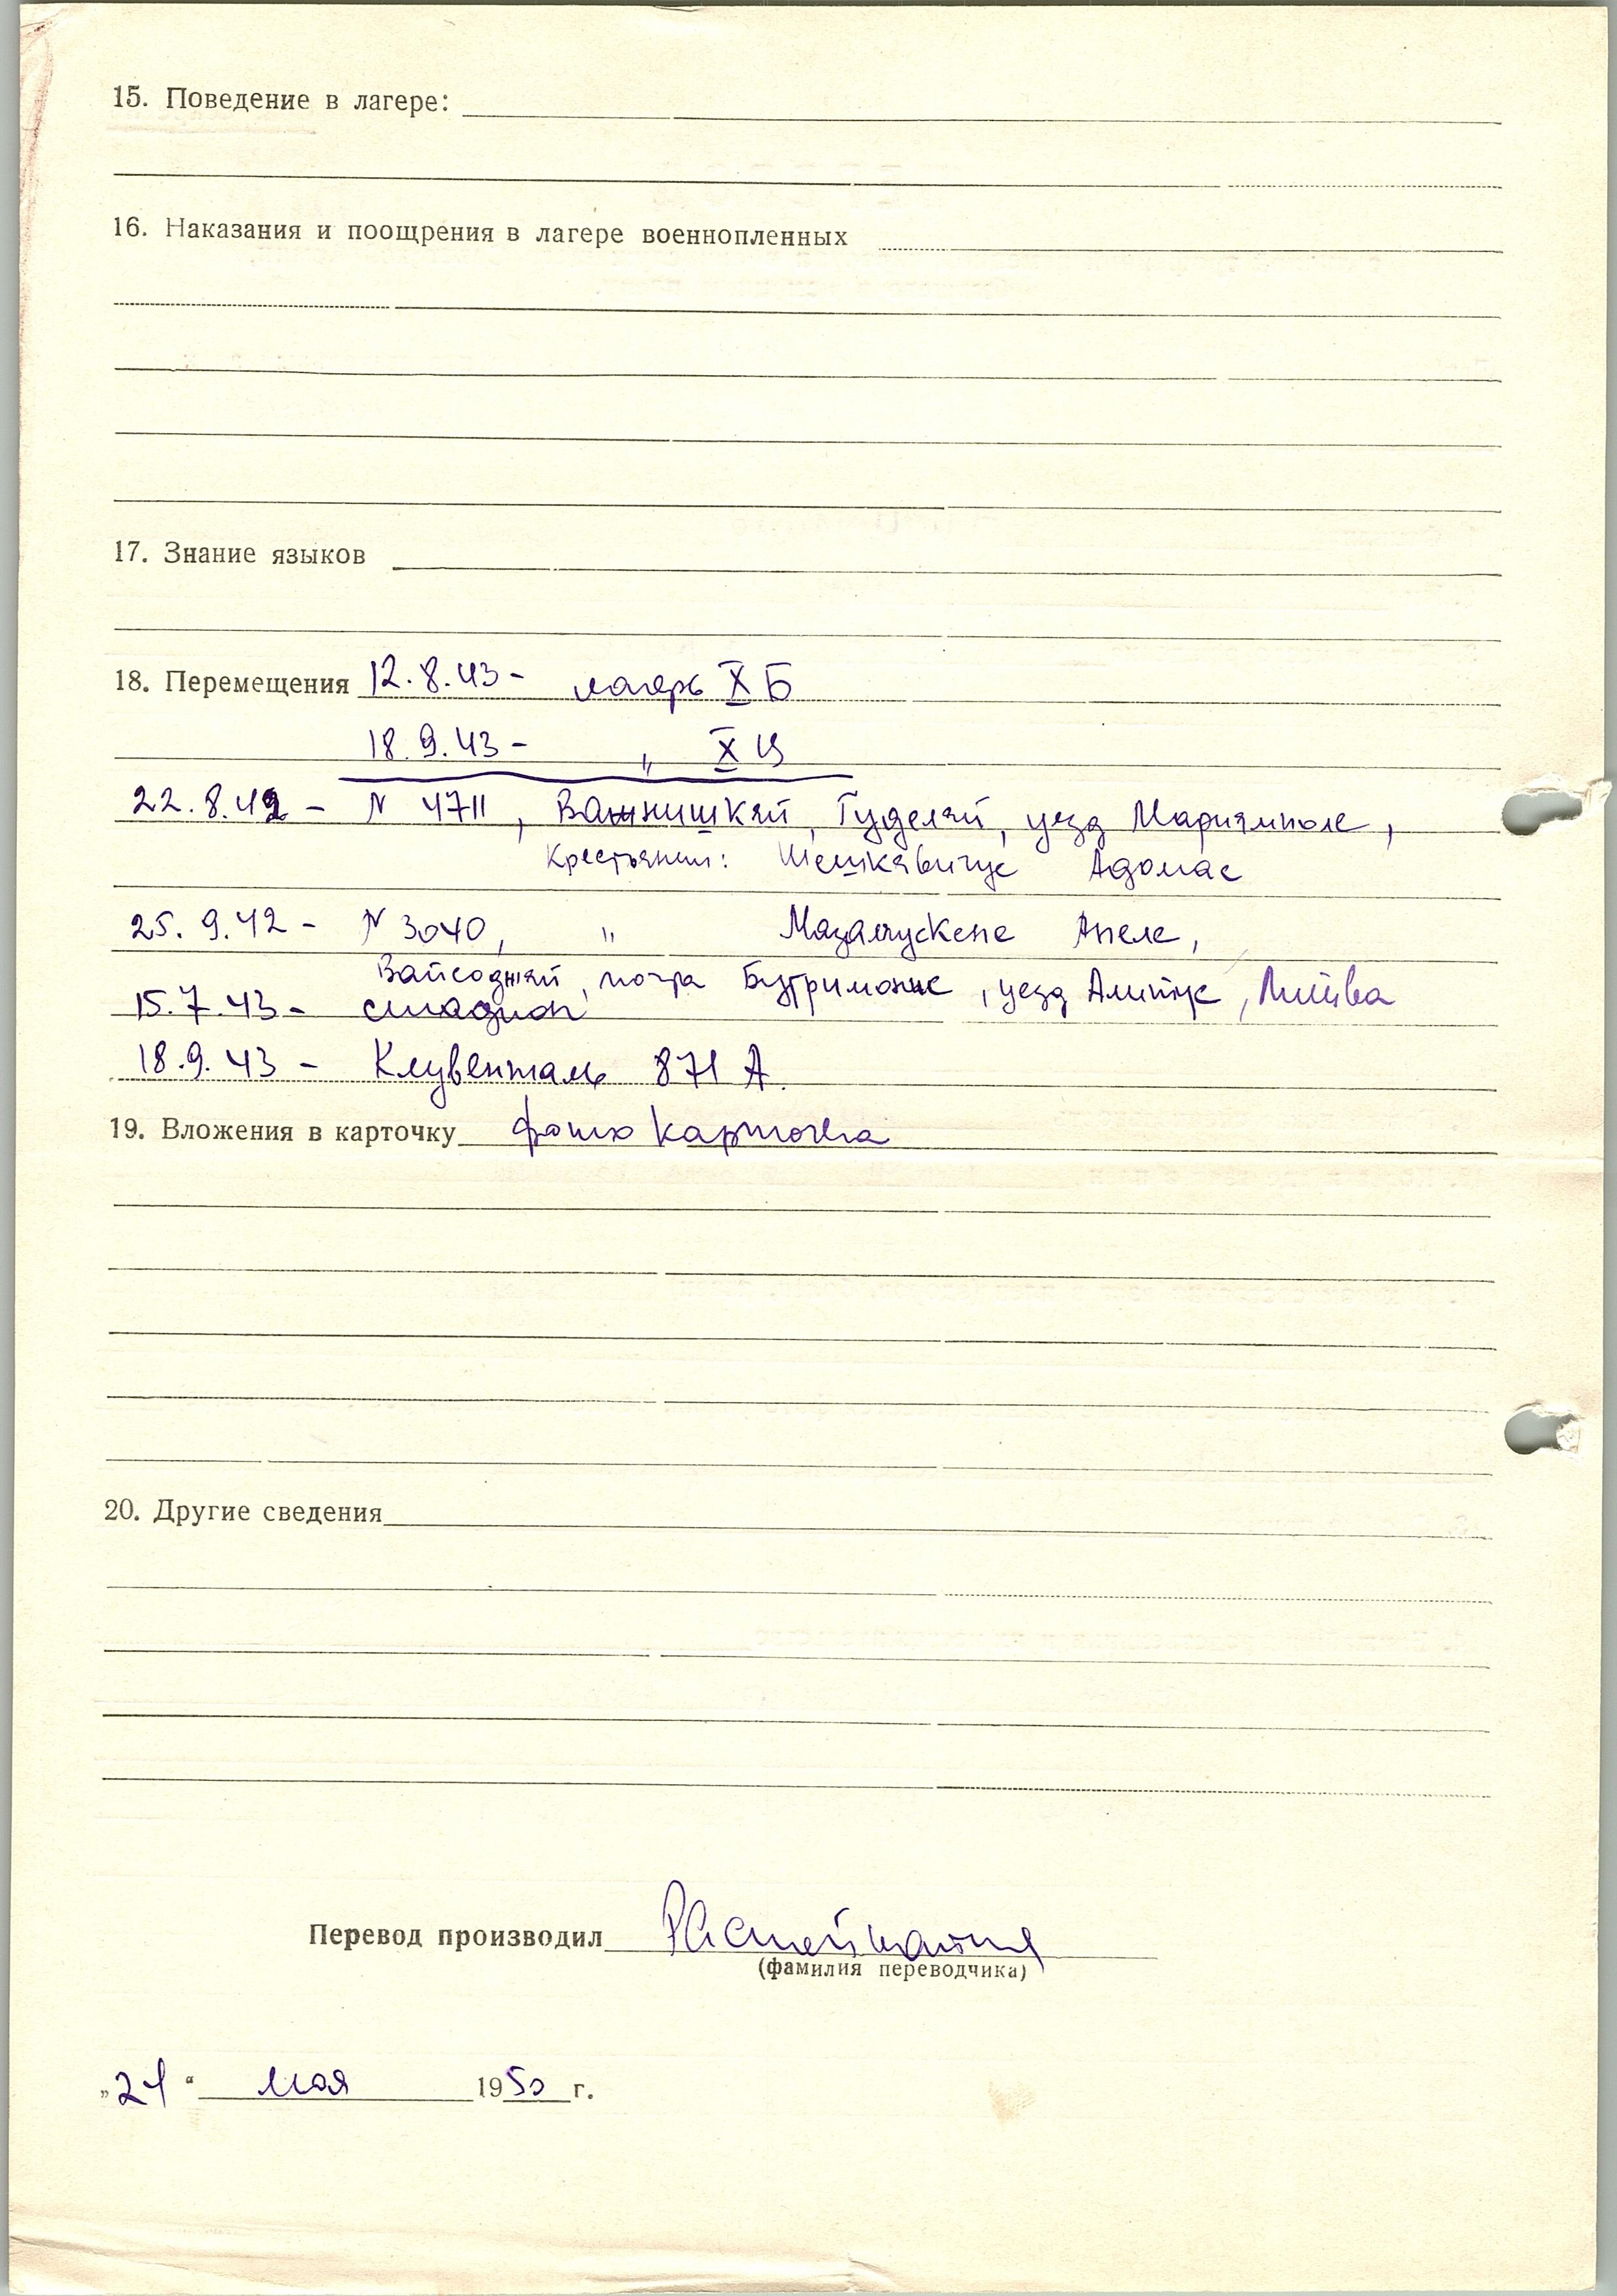 15. Поведение в лагере:
16. Наказания и поощрения в лагере военнопленных
17. Знание языков
18. Перемещения 12.8.43 - лагерь X Б
18.9.43 - " X Ц
22.8.42 - N 4711, Гуделяй, уезд Мариямполе,
Крестьянин: Шешкявичус Адомас
25.9.42 - N 3040, " Апеле,
почта Бутримонис, уезд Алитус, Литва
15.7.43 - стадион
18.9.43 - Клувенталь 871 А.
19. Вложения в карточку фото карточка
20. Другие сведения
Перевод производил
(фамилия переводчика)
„21“ мая 1950 г.